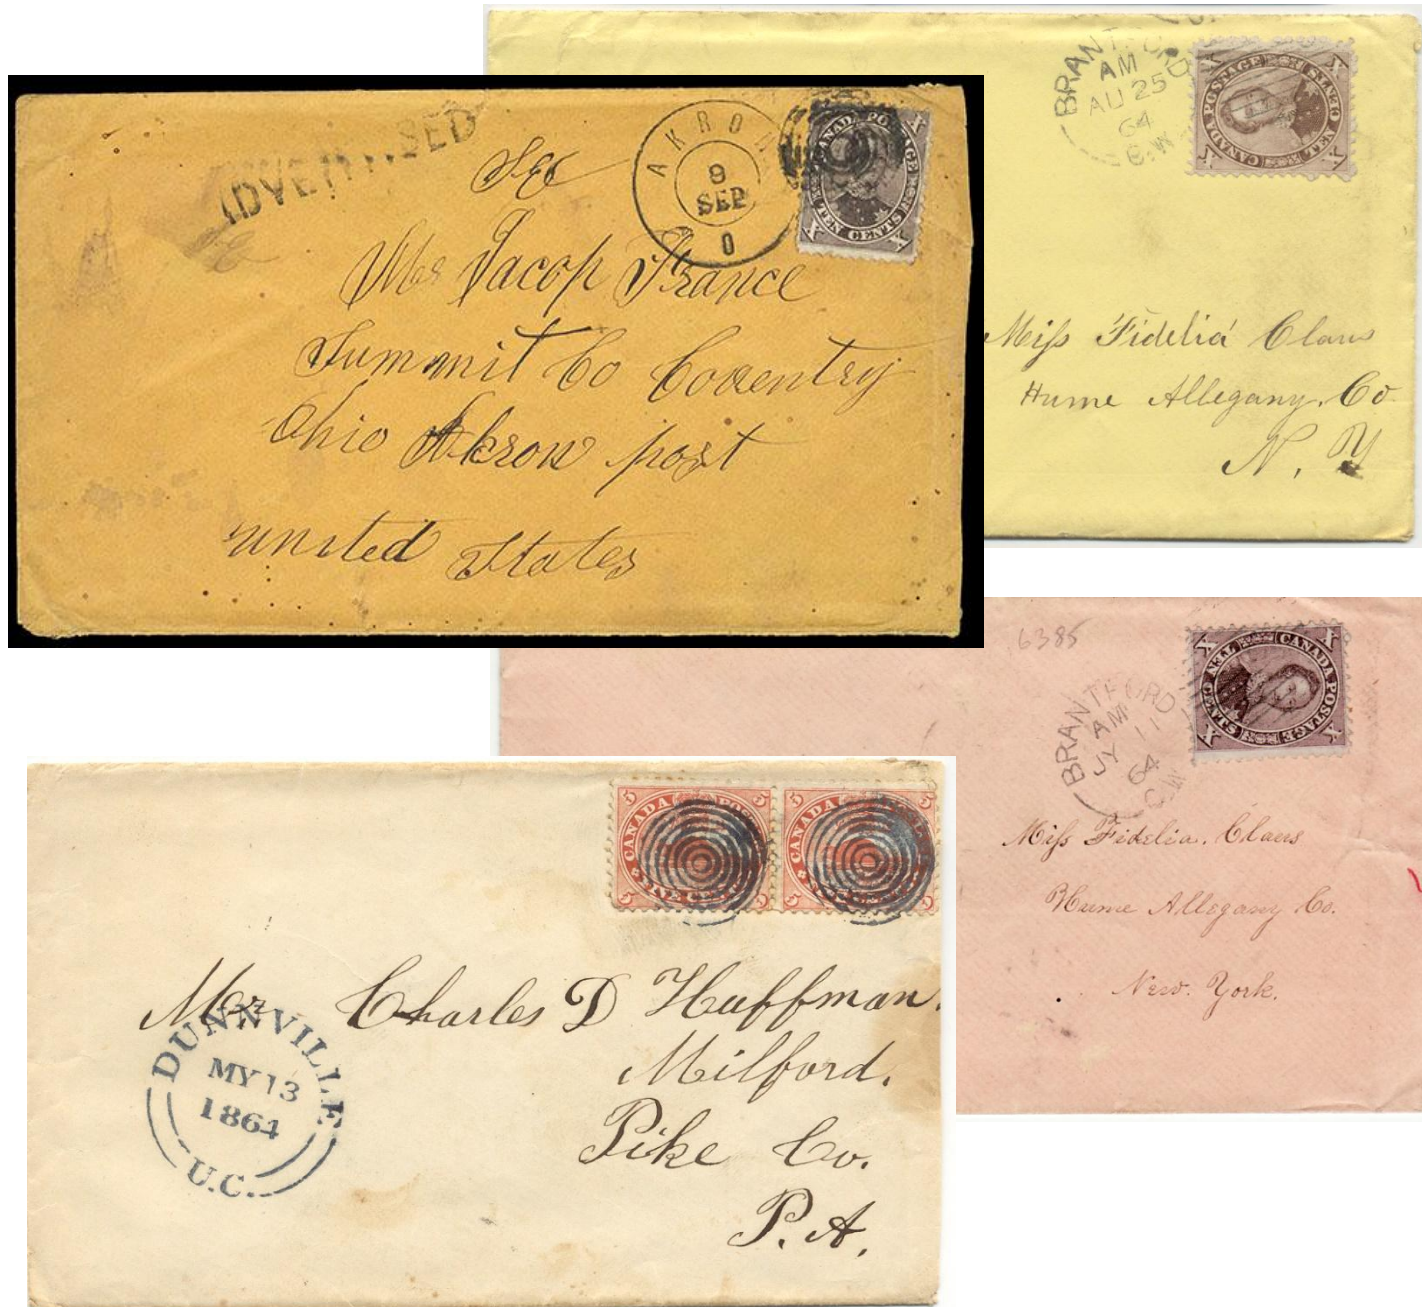 ADVERTISED
AKRON
9
SEP
O
CANADA POSTAGE
TEN CENTS
X X
Mr Jacop France
Summit Co Coventry
Ohio Akron post
united States
BRANTFORD
AM
AU 25
64
C.W
CANADA POSTAGE
TEN CENTS
X X X X
Miss Fidelia Claus
Hume Allegany. Co
N. Y
6385
BRANTFORD
AM
JY 11
64
C.W
CANADA POSTAGE
TEN CENTS
X X X X
Miss Fidelia. Claus
Hume Allegany Co.
New. York.
5 CANADA POSTAGE 5
FIVE CENTS
5 5
5 CANADA
5 5
Mr Charles D Huffman.
Milford.
Pike Co.
P. A.
DUNNVILLE
MY 13
1864
U.C.